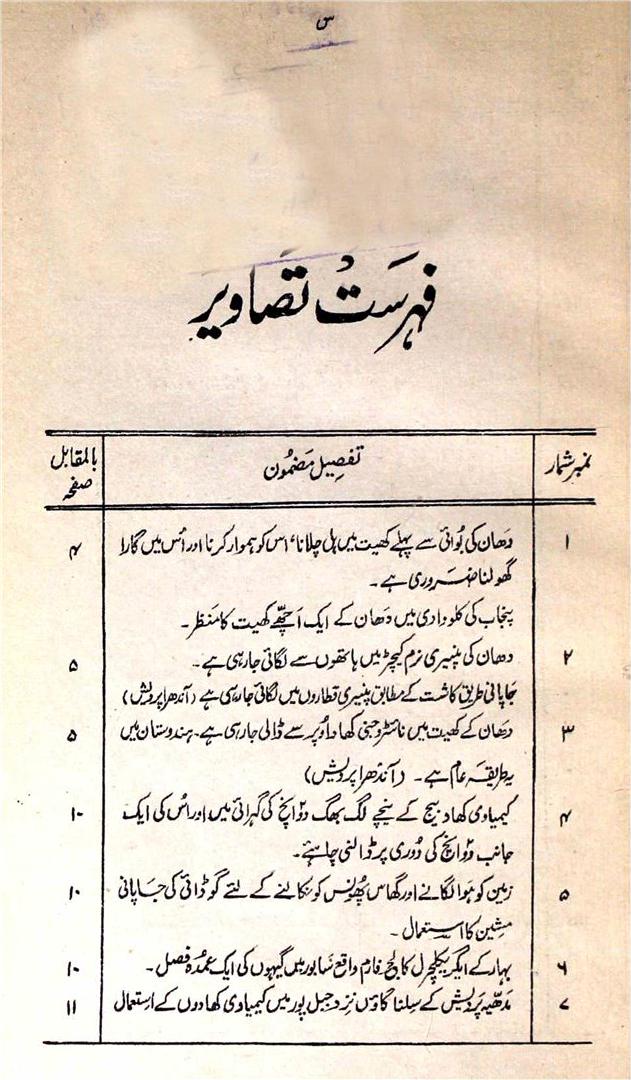 س
فہرست تصاویر
نمبر شمار تفصیل مضمون بالمقابل صفحہ
۱ دھان کی بُوائی سے پہلے کھیت میں ہل چلانا، اس کو ہموار کرنا اور اُس میں گارا ۴
گھولنا ضروری ہے۔
پنجاب کی کلو وادی میں دھان کے ایک اچھّے کھیت کا منظر۔
۲ دھان کی پنیری نرم کیچڑ میں ہاتھوں سے لگائی جا رہی ہے۔ ۵
جاپانی طریق کاشت کے مطابق پنیری قطاروں میں لگائی جا رہی ہے (آندھرا پردیش)
۳ دھان کے کھیت میں نائٹروجنی کھاد اُوپر سے ڈالی جا رہی ہے۔ ہندوستان میں ۵
یہ طریقہ عام ہے۔ (آندھرا پردیش)
۴ کیمیاوی کھاد بیج کے نیچے لگ بھگ دو اِنچ کی گہرائی میں اور اُس کی ایک ۱۰
جانب دو اِنچ کی دُوری پر ڈالنی چاہئے۔
۵ زمین کو ہوا لگانے اور گھاس پھُونس کو نکالنے کے لئے گوڈائی کی جاپانی ۱۰
مشین کا استعمال۔
۶ بہار کے ایگریکلچرل کالج فارم واقع سابور میں گیہوں کی ایک عمدہ فصل۔ ۱۰
۷ مدھیہ پردیش کے سِلنا گاؤں نزد جبل پور میں کیمیاوی کھادوں کے استعمال ۱۱